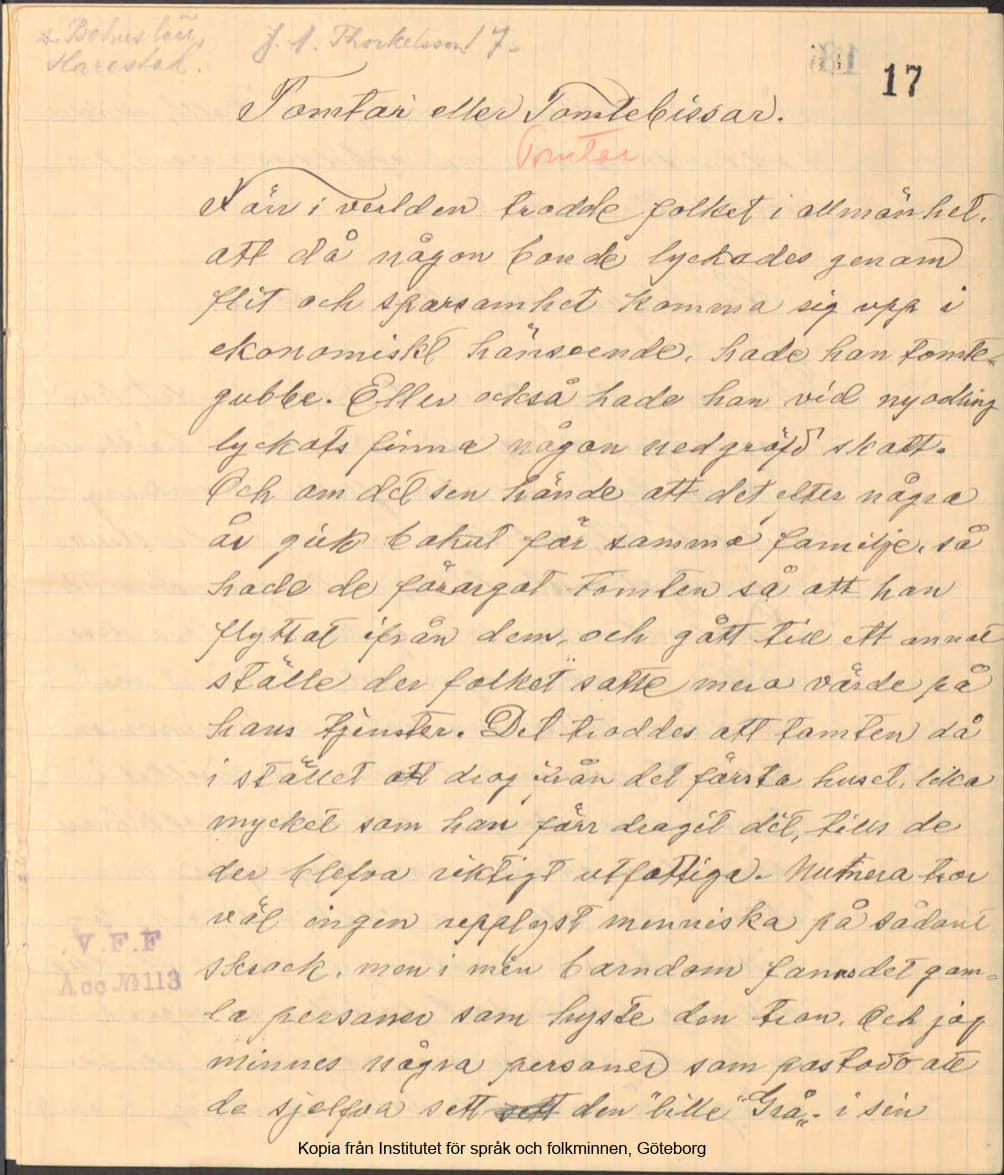 Bohuslän,
Harestad.
J. A. Thorkelsson 7.
17
Tomtar eller Tomtebissar.
Tomter
Förr i verlden trodde folket i allmänhet.
att då någon bonde lyckades genom
flit och sparsamhet komma sig upp i
ekonomiskt hänseende, hade han tomte-
gubbe. Eller också hade han vid nyodling
lyckats finna någon nedgräfd skatt.
Och om det sen hände att det efter några
år gick bakut för samma familje, så
hade de förargat tomten så att han
flyttat ifrån dem, och gått till ett annat
ställe der folket satte mera värde på
hans tjenster. Det troddes att tomten då
i stället att drog från det första huset, lika
mycket som han förr dragit dit, tills de
der blefva riktigt utfattiga. Nutmera tror
väl ingen upplyst menniska på sådant
skrock, men i min barndom fanns det gam-
la personer som hyste den tron. Och jag
minnes några personer som påstodo att
de sjelfva sett sett den "lille Grå" i sin
V.F.F
Acc № 113
Kopia från Institutet för språk och folkminnen, Göteborg